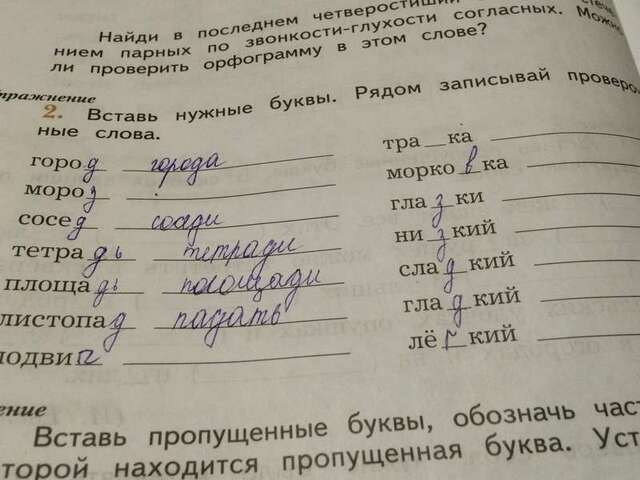 Найди в последнем четверостишии
нием парных по звонкости-глухости согласных. Можно
ли проверить орфограмму в этом слове?
пражнение
2. Вставь нужные буквы. Рядом записывай провероч
ные слова.
город города
мороз
сосед соседи
тетрадь тетради
площадь площади
листопад падать
подвиг
тра_ка
морковка
глазки
низкий
сладкий
гладкий
лёгкий
ение
Вставь пропущенные буквы, обозначь част
торой находится пропущенная буква. Уст